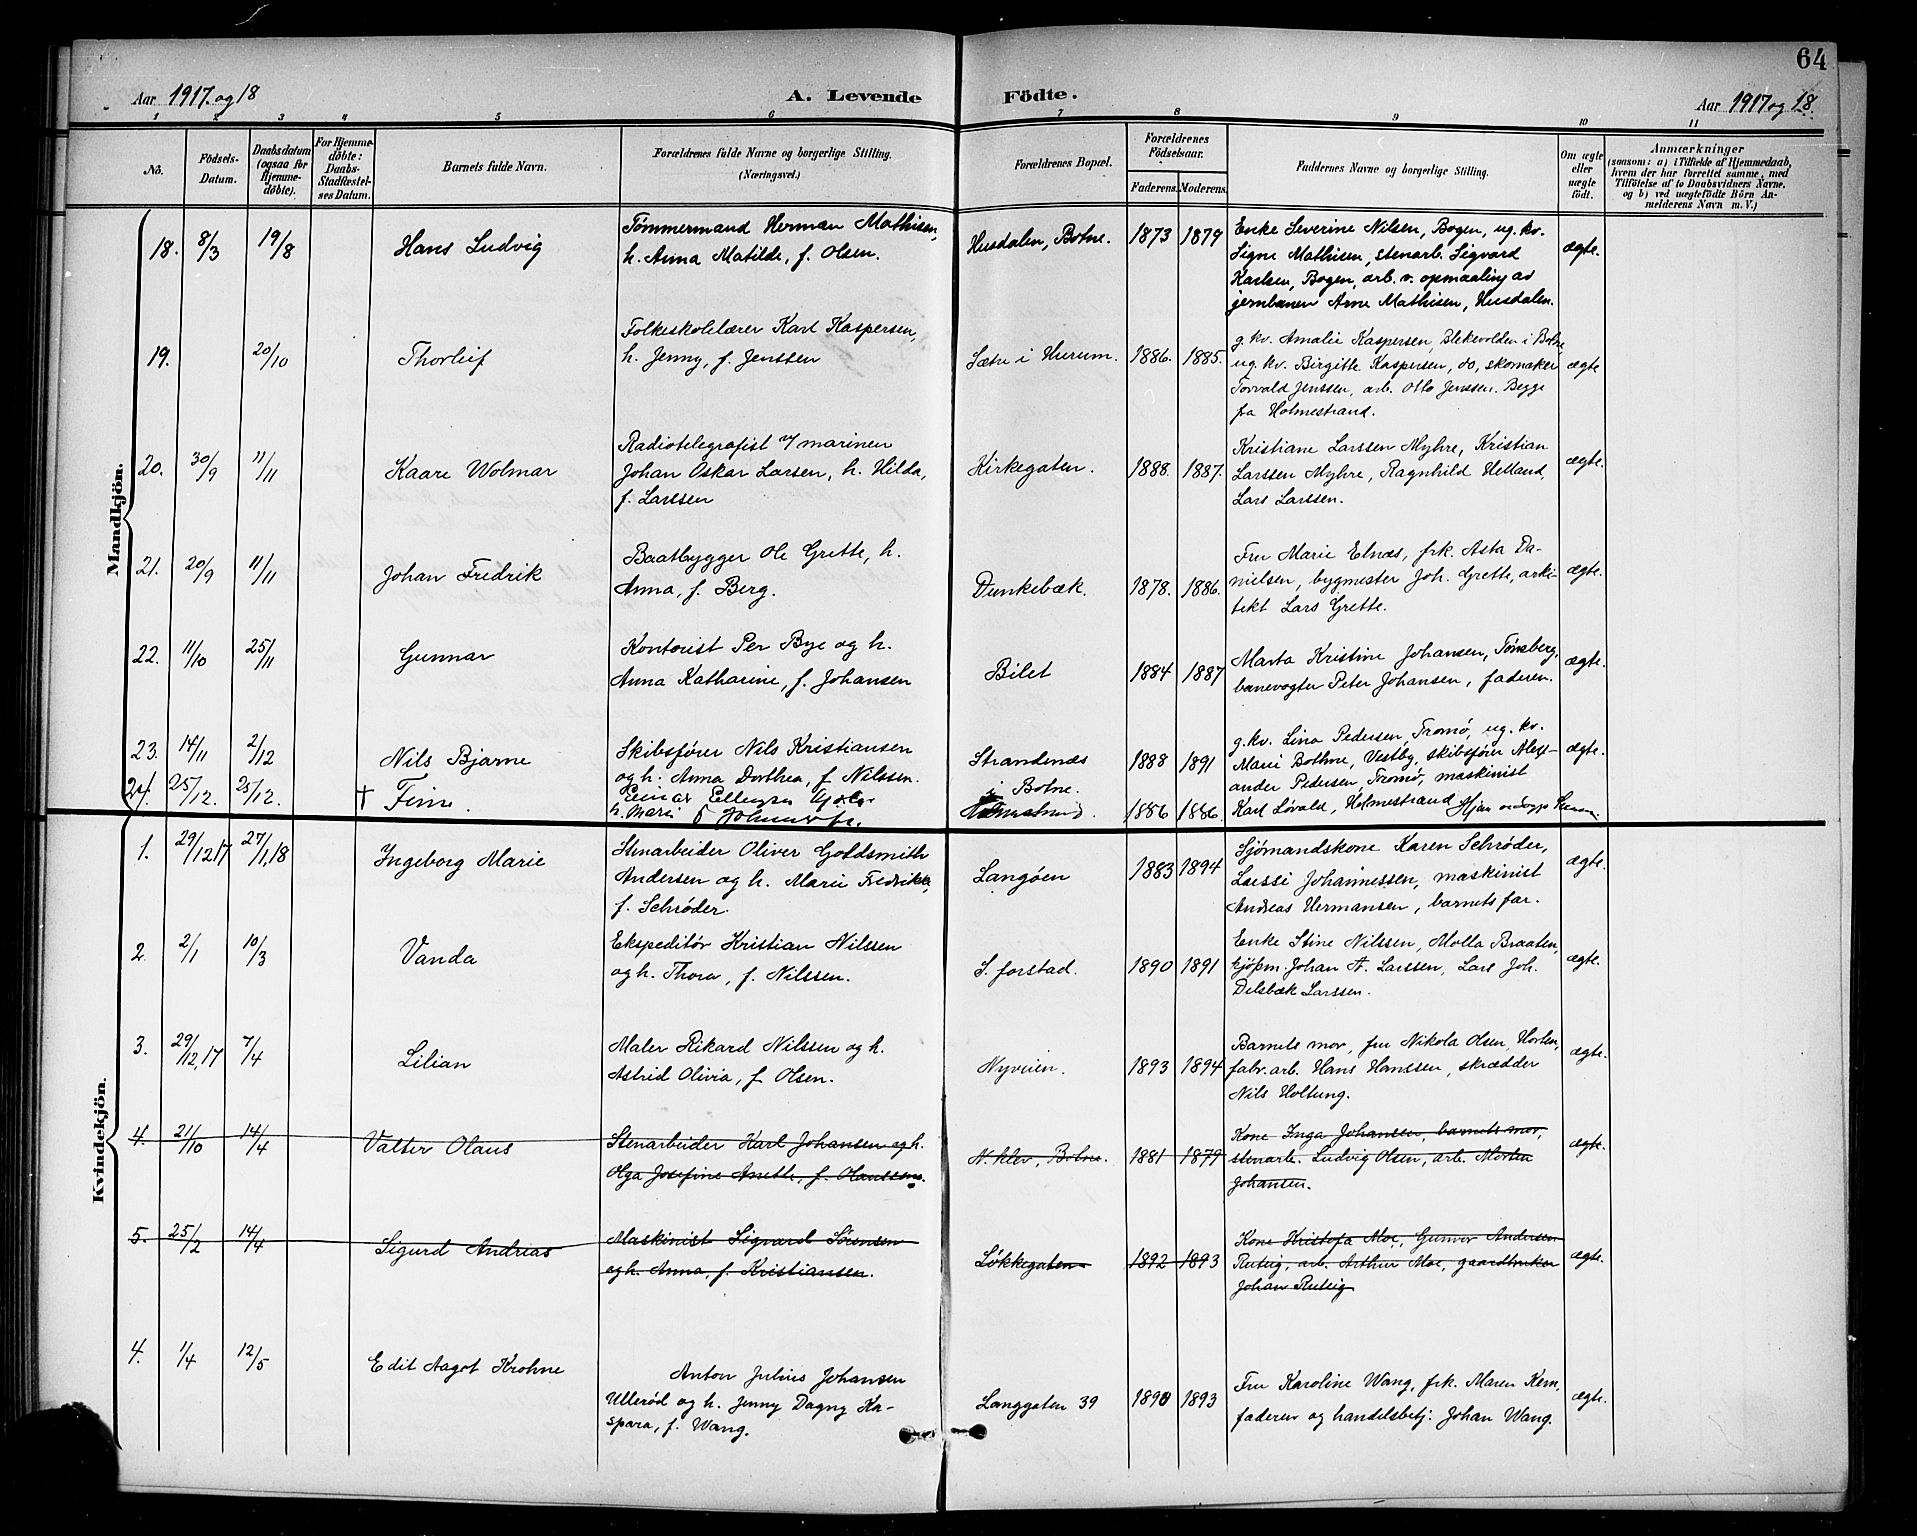 64
Aar 1917 og 18
A. Levende Födte.
Aar 1917 og 18.
1 2 3 4 5 6 7 8 9 10 11
No.
Födsels-Datum.
Daabsdatum (ogsaa for Hjemmedöbte).
For Hjemmedöbte: Daabs-Stadfæstelses Datum.
Barnets fulde Navn.
Forældrenes fulde Navne og borgerlige Stilling. (Næringsvei.)
Forældrenes Bopæl.
Forældrenes Födselsaar.
Faderens. Moderens.
Faddernes Navne og borgerlige Stilling.
Om ægte eller uægte födt.
Anmærkninger
(saasom: a) i Tilfælde af Hjemmedaab, hvem der har forrettet samme, med Tilföielse af to Daabsvidners Navne, og b) ved uægtefödte Börn Anmelderens Navn m. V.)
Mandkjön.
18. 8/3 19/8 Hans Ludvig
Tømmermand Herman Mathisen,
h. Anna Matilde, f. Olsen.
Husdalen, Botne. 1873 1879
Enke Severine Nilsen, Bogen, ug. kv.
Signe Mathisen, stenarb. Sigvard
Karlsen, Bogen, arb. v. opmaaling av
jernbanen Arne Mathisen, Husdalen.
ægte.
19. 20/10 Thorleif
Folkeskolelærer Karl Kaspersen,
h. Jenny, f. Jenssen
Sætre i Hurum. 1886. 1885.
g. kv. Amalie Kaspersen, Blekevolden i Botne,
ug. kv. Birgitte Kaspersen, do, skomaker
Torvald Jenssen, arb. Otto Jenssen. Begge
fra Holmestrand.
ægte
20. 30/9 11/11 Kaare Wolmar
Radiotelegrafist v/ marinen
Johan Oskar Larsen, h. Hilda,
f. Larssen
Kirkegaten. 1888. 1887.
Kristiane Larssen Myhre, Kristian
Larssen Myhre, Ragnhild Helland,
Lars Larssen.
ægte.
21. 20/9 11/11 Johan Fredrik
Baatbygger Ole Grette, h.
Anna, f. Berg.
Dunkebæk. 1878. 1886.
Fru Marie Elnæs, frk. Asta Da-
nielsen, bygmester Joh. Grette, arki-
tekt Lars Grette.
ægte.
22. 11/10 25/11 Gunnar
Kontorist Per Bye og h.
Anna Katharine, f. Johansen
Bilet 1884 1887
Marta Kristine Johansen, Tønsberg,
banevogter Peter Johansen, faderen.
ægte.
23. 14/11 2/12 Nils Bjarne
Skibsfører Nils Kristiansen
og h. Anna Dorthea, f. Nilssen.
Strandenæs
i Botne.
1888 1891
g. kv. Lina Pedersen, Tromø, ug. kv.
Marie Bothne, Vestby, skibsfører Alex-
ander Pedersen, Tromø, maskinist
Karl Løvald, Holmestrand
ægte.
24. 25/12. 25/12. † Finn.
Einar Ellegsen
h. Marie f.
1886 1886
Kvindekjön.
1. 29/12 17 27/1, 18 Ingeborg Marie
Stenarbeider Oliver Goldsmith
Andersen og h. Marie Fredrikke,
f. Schrøder.
Langøen 1883 1894
Sjømandskone Karen Schrøder,
Lassi Johannessen, maskinist
Andreas Hermansen, barnets far.
ægte.
2. 2/1 10/3 Vanda
Ekspeditør Kristian Nilssen
og h. Thora, f. Nilssen.
S. forstad. 1890 1891
Enke Stine Nilssen, Molla Braaten,
kjøpm. Johan A. Larssen, Lars Joh.
Delsbæk Larssen.
ægte.
3. 29/12, 17 7/4 Lilian
Maler Rikard Nilssen og h.
Astrid Olivia, f. Olsen.
Nyveien. 1893 1894
Barnets mor, fru Nikola Olsen, Horten,
fabr. arb. Hans Hanssen, skrædder
Nils Holtung.
ægte.
4. 21/10 14/4 Valter Olaus
Stenarbeider Karl Johansen og h.
Olga Josefine Anette, f. Olaussen.
N. klev, Botne. 1881 1879
Kone Inga Johansen, barnets mor,
stenarb. Ludvig Olsen, arb. Morten
Johansen.
ægte.
5. 25/2 14/4 Sigurd Andreas
Maskinist Sigvard Sørensen
og h. Anna, f. Kristiansen.
Løkkegaten 1892 1893
Kone Kristofa Moe, Gunvor Andersen
Ruteig, arb. Arthur Moe, gaardbruker
Johan Ruteig
ægte.
4. 1/4 12/5 Edit Aagot Krohne
Anton Julius Johansen
Ullerød og h. Jenny Dagny Ka-
spara, f. Wang.
Langgaten 39 1890 1893
Fru Karoline Wang, frk. Maren Kem,
faderen og handelsbetj. Johan Wang.
ægte.